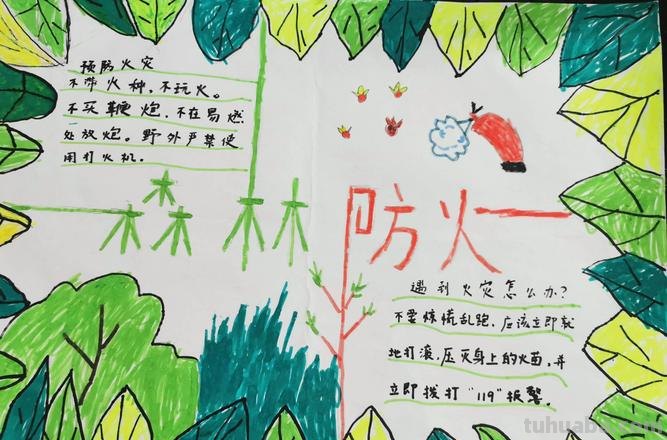 预防火灾
不带火种，不玩火。
不买鞭炮，不在易燃
处放炮。野外严禁使
用打火机。
森林防火
遇到火灾怎么办？
不要惊慌乱跑，应该立即就
地打滚，压灭身上的火苗，并
立即拨打“119”报警。